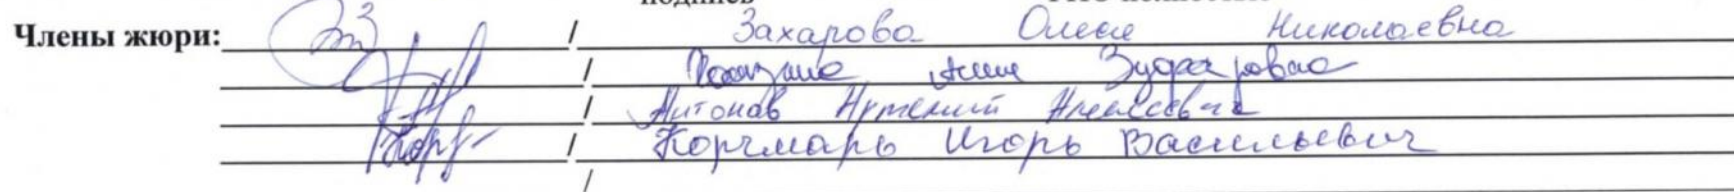 подпись
Члены жюри: / Захарова Олеся Николаевна
/ Зуфаровна
/ Антонов Артемий Алексеевич
/ Корчмарь Игорь Васильевич
/